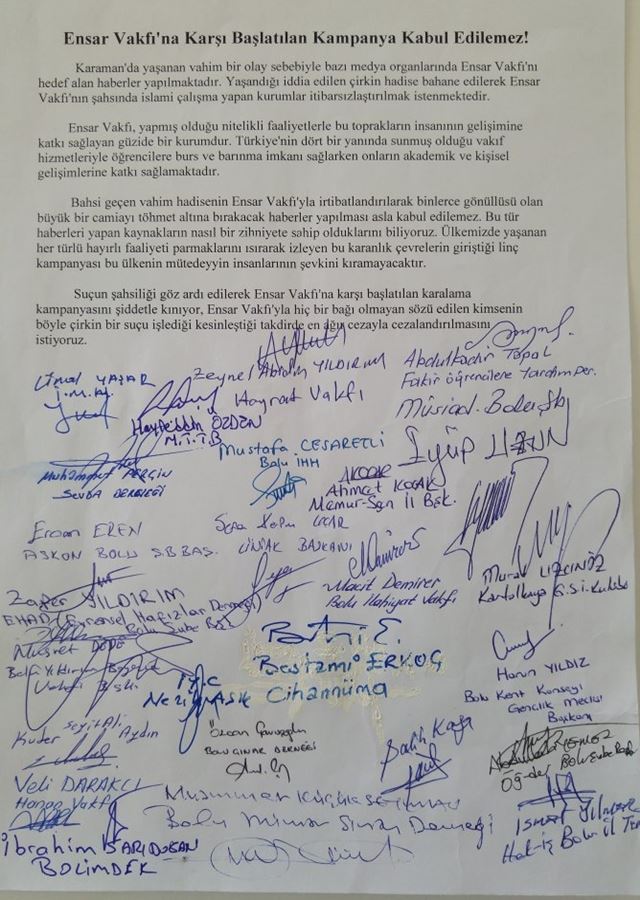 Ensar Vakfı'na Karşı Başlatılan Kampanya Kabul Edilemez!
Karaman'da yaşanan vahim bir olay sebebiyle bazı medya organlarında Ensar Vakfı'nı
hedef alan haberler yapılmaktadır. Yaşandığı iddia edilen çirkin hadise bahane edilerek Ensar
Vakfı'nın şahsında islami çalışma yapan kurumlar itibarsızlaştırılmak istenmektedir.
Ensar Vakfı, yapmış olduğu nitelikli faaliyetlerle bu toprakların insanının gelişimine
katkı sağlayan güzide bir kurumdur. Türkiye'nin dört bir yanında sunmuş olduğu vakıf
hizmetleriyle öğrencilere burs ve barınma imkanı sağlarken onların akademik ve kişisel
gelişimlerine katkı sağlamaktadır.
Bahsi geçen vahim hadisenin Ensar Vakfı'yla irtibatlandırılarak binlerce gönüllüsü olan
büyük bir camiayı töhmet altına bırakacak haberler yapılması asla kabul edilemez. Bu tür
haberleri yapan kaynakların nasıl bir zihniyete sahip olduklarını biliyoruz. Ülkemizde yaşanan
her türlü hayırlı faaliyeti parmaklarını ısırarak izleyen bu karanlık çevrelerin giriştiği linç
kampanyası bu ülkenin mütedeyyin insanlarının şevkini kıramayacaktır.
Suçun şahsiliği göz ardı edilerek Ensar Vakfı'na karşı başlatılan karalama
kampanyasını şiddetle kınıyor, Ensar Vakfı'yla hiç bir bağı olmayan sözü edilen kimsenin
böyle çirkin bir suçu işlediği kesinleştiği takdirde en ağır cezayla cezalandırılmasını
istiyoruz.
YAŞAR
Zeynel Abidin YILDIRIM
Hayrat Vakfı
Abdulkadir Topal
Fakir Öğrencilere Yardım Der.
Hayreddin ÖZDEN
M.T.T.B
Müsiad. Bolu Şb
Eyüp UZUN
Mustafa CESARETLİ
Bolu İHH
Muhammet
SEVDA DERNEĞİ
Ahmet KOÇAK
Memur-Sen İl Bşk.
Ercan EREN
ASKON BOLU ŞB BAŞ.
UÇAR
BAŞKANI
Macit Demirer
Bolu İlahiyat Vakfı
Murat
Kartalkaya G.S.İ. Kulübü
Zafer YILDIRIM
EHAD (Evrensel Hafızlar Derneği)
Bolu Şube Bşk
Nusret DEDE
Bestami ERKOÇ
Cihannüma
Harun YILDIZ
Bolu Kent Konseyi
Gençlik Meclisi
Başkanı
Seyit Ali
Aydın
Özcan
BOLU ÇINAR DERNEĞİ
Salih Kaya
Öğ-der Bolu Şube
Veli DARAKÇI
Vakfı
Muammer
Bolu Mimar Sinan Derneği
İsmet Yılmazer
Hak-İş Bolu İl
İbrahim SARIDOĞAN
BOLİMDER